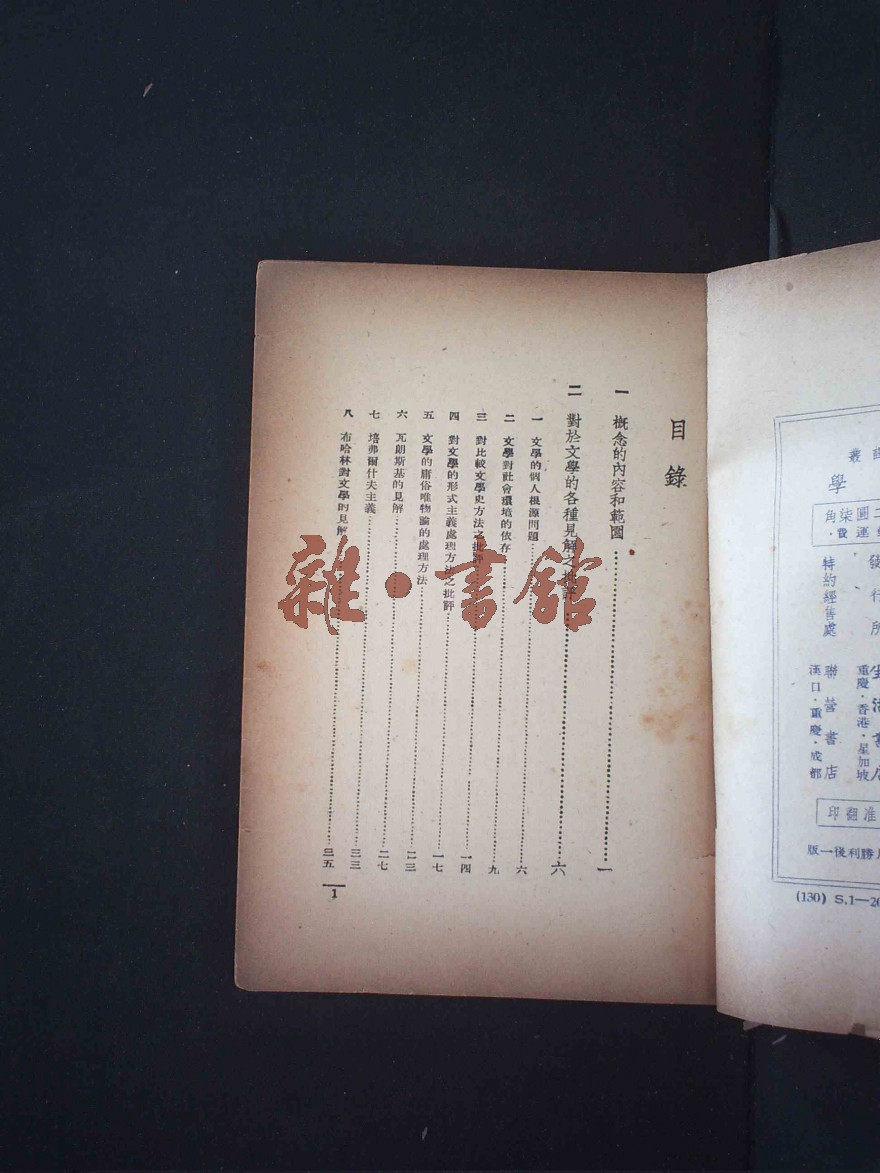 目錄
一 概念的內容和範圍 一
二 對於文學的各種見解之批評 六
一 文學的個人根源問題 六
二 文學對社會環境的依存 九
三 對比較文學史方法之批評 一四
四 對文學的形式主義處理方法之批評 一七
五 文學的庸俗唯物論的處理方法 二三
六 瓦朗斯基的見解 二七
七 培弗爾什夫主義 三三
八 布哈林對文學的見解 三五
1
雜·書館
叢
學
角柒圓二
費·運
發行所
生活書店
重慶·香港·星加坡
特約經售處
聯營書店
漢口·重慶·成都
印翻准
版一後利勝
(130) S.1—20